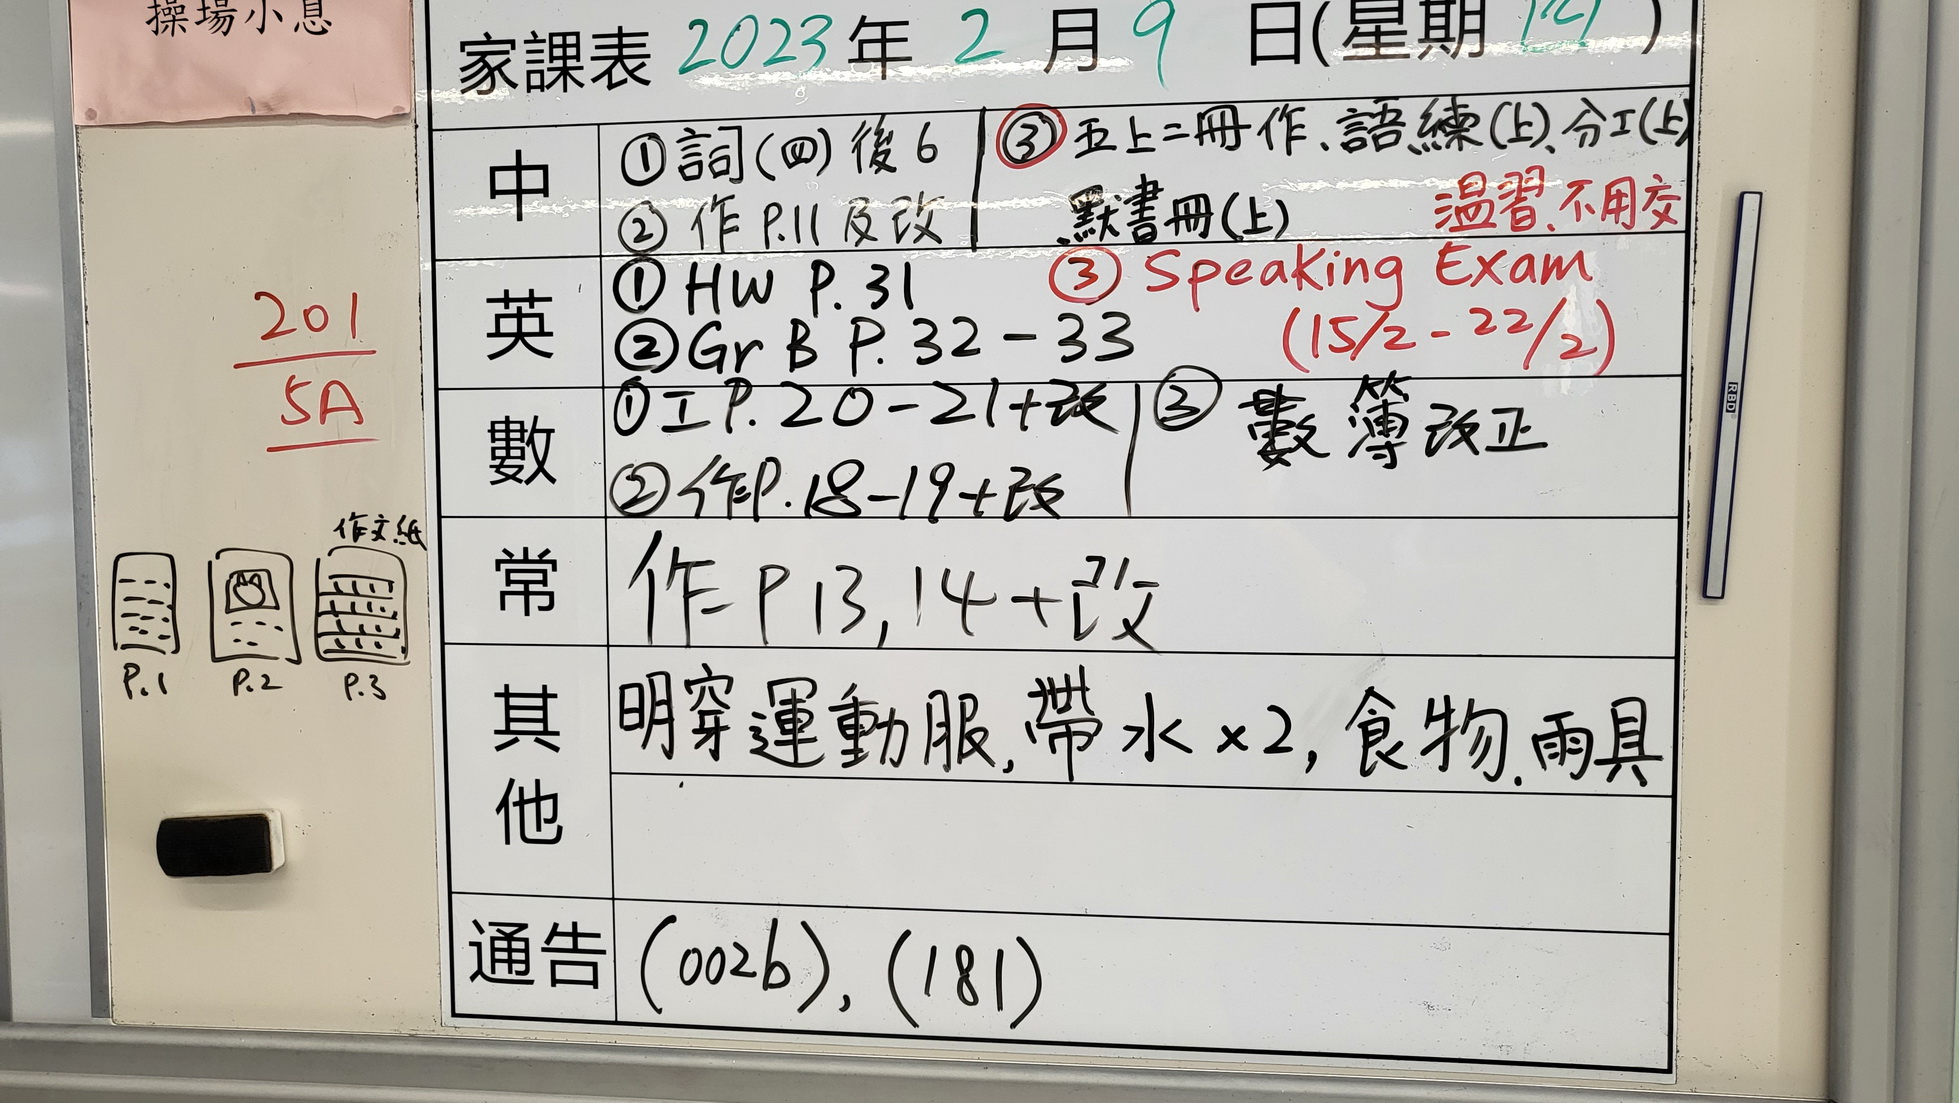 操場小息
家課表 2023年 2月 9日(星期四)
中
①詞(四)後6
②作 P.11及改
③五上二冊作、語練(上)、分工(上)
默書冊(上)
温習、不用交
英
①HW P.31
②Gr B P.32-33
③Speaking Exam
(15/2-22/2)
數
①工P.20-21+改
②作P.18-19+改
③數簿改正
常
作P13,14+改
其他
明穿運動服,帶水×2,食物、雨具
通告
(002b),(181)
201
5A
作文紙
P.1
P.2
P.3
RBD